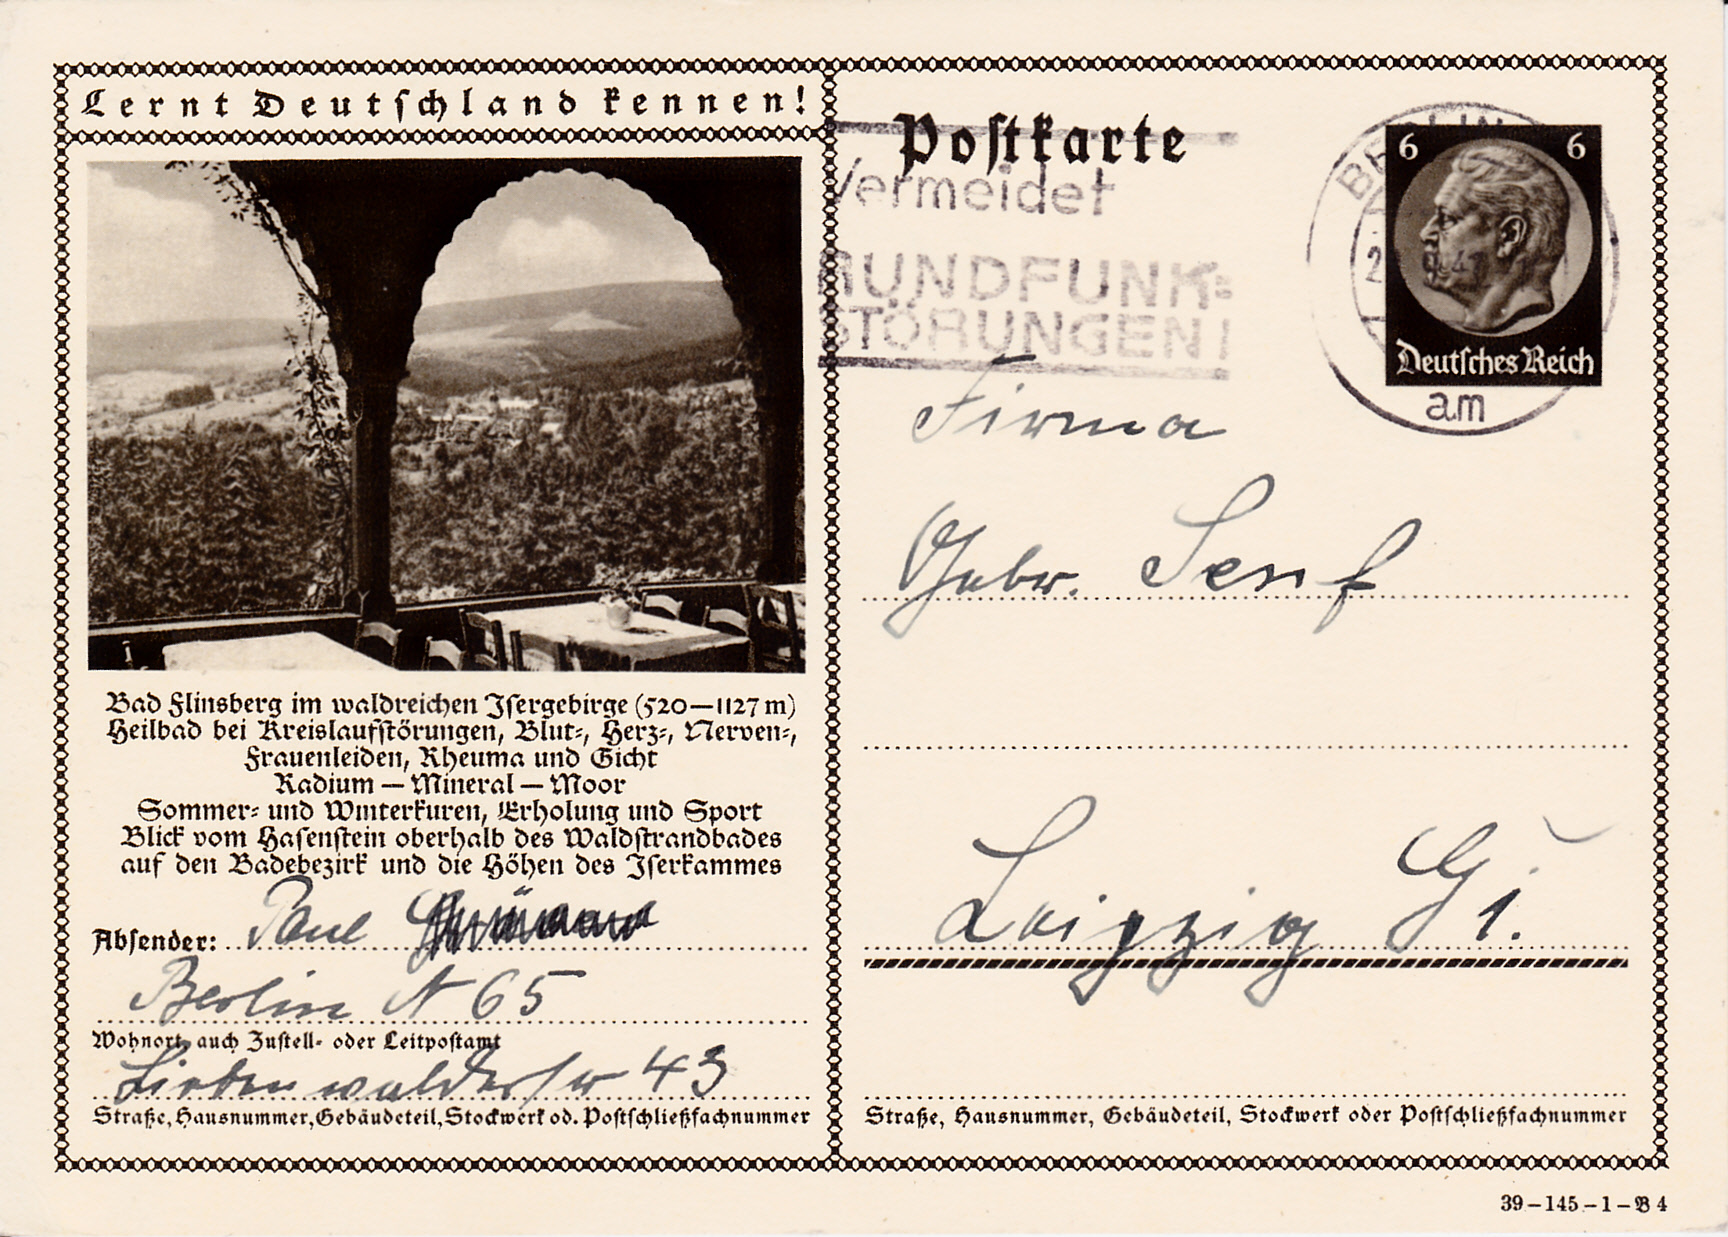 Lernt Deutschland kennen!
Bad Flinsberg im waldreichen Isergebirge (520—1127 m)
Heilbad bei Kreislaufstörungen, Blut-, Herz-, Nerven-,
Frauenleiden, Rheuma und Gicht
Radium — Mineral — Moor
Sommer- und Winterkuren, Erholung und Sport
Blick vom Hasenstein oberhalb des Waldstrandbades
auf den Badebezirk und die Höhen des Iserkammes
Absender: Paul
Berlin N 65
Wohnort, auch Zustell- oder Leitpostamt
Liebenwalderstr 43
Straße, Hausnummer, Gebäudeteil, Stockwerk od. Postschließfachnummer
Postkarte
Vermeidet
RUNDFUNK-
STÖRUNGEN!
BERLIN
am
6 6
Deutsches Reich
Firma
Gebr. Senf
Leipzig
Straße, Hausnummer, Gebäudeteil, Stockwerk oder Postschließfachnummer
39–145–1–B 4